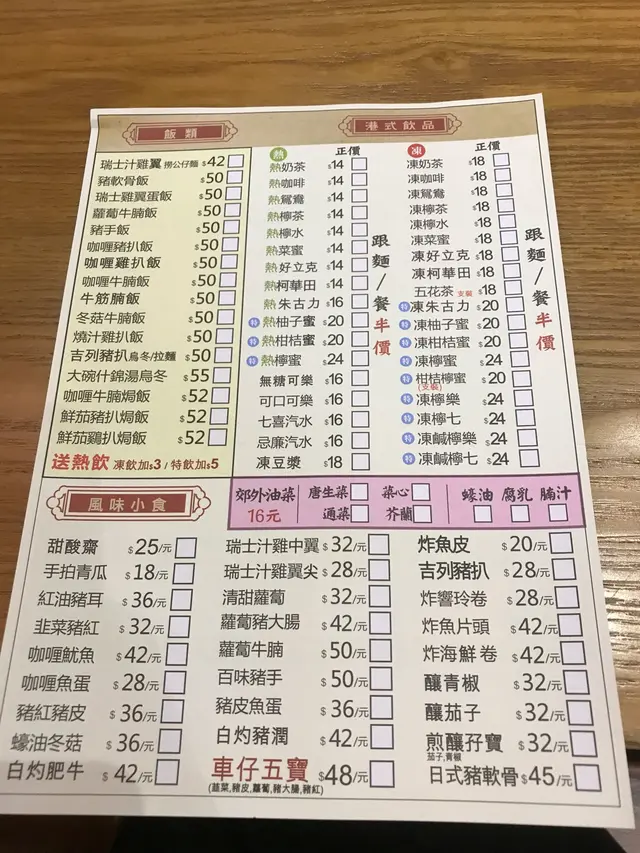 飯類
瑞士汁雞翼 撈公仔麵 $42
豬軟骨飯 $50
瑞士雞翼蛋飯 $50
蘿蔔牛腩飯 $50
豬手飯 $50
咖喱豬扒飯 $50
咖喱雞扒飯 $50
咖喱牛腩飯 $50
牛筋腩飯 $50
冬菇牛腩飯 $50
燒汁雞扒飯 $50
吉列豬扒烏冬/拉麵 $50
大碗什錦湯烏冬 $55
咖喱牛腩焗飯 $52
鮮茄豬扒焗飯 $52
鮮茄雞扒焗飯 $52
送熱飲 凍飲加$3 / 特飲加$5
港式飲品
熱 正價
熱奶茶 $14
熱咖啡 $14
熱鴛鴦 $14
熱檸茶 $14
熱檸水 $14
熱菜蜜 $14
熱好立克 $14
熱柯華田 $14
熱朱古力 $16
特 熱柚子蜜 $20
特 熱柑桔蜜 $20
特 熱檸蜜 $24
無糖可樂 $16
可口可樂 $16
七喜汽水 $16
忌廉汽水 $16
凍豆漿 $18
跟麵/餐半價
凍 正價
凍奶茶 $18
凍咖啡 $18
凍鴛鴦 $18
凍檸茶 $18
凍檸水 $18
凍菜蜜 $18
凍好立克 $18
凍柯華田 $18
五花茶 支裝 $18
特 凍朱古力 $20
特 凍柚子蜜 $20
特 凍柑桔蜜 $20
特 凍檸蜜 $24
特 柑桔檸蜜 $20
(支裝)
特 凍檸樂 $24
特 凍檸七 $24
特 凍鹹檸樂 $24
特 凍鹹檸七 $24
跟麵/餐半價
郊外油菜 唐生菜 菜心 蠔油 腐乳 腩汁
16元 通菜 芥蘭
風味小食
甜酸齋 $25/元
手拍青瓜 $18/元
紅油豬耳 $36/元
韭菜豬紅 $32/元
咖喱魷魚 $42/元
咖喱魚蛋 $28/元
豬紅豬皮 $36/元
蠔油冬菇 $36/元
白灼肥牛 $42/元
瑞士汁雞中翼 $32/元
瑞士汁雞翼尖 $28/元
清甜蘿蔔 $32/元
蘿蔔豬大腸 $42/元
蘿蔔牛腩 $50/元
百味豬手 $50/元
豬皮魚蛋 $36/元
白灼豬潤 $42/元
車仔五寶 $48/元
(韮菜,豬皮,蘿蔔,豬大腸,豬紅)
炸魚皮 $20/元
吉列豬扒 $28/元
炸響玲卷 $28/元
炸魚片頭 $42/元
炸海鮮卷 $42/元
釀青椒 $32/元
釀茄子 $32/元
煎釀孖寶 $32/元
茄子,青椒
日式豬軟骨 $45/元